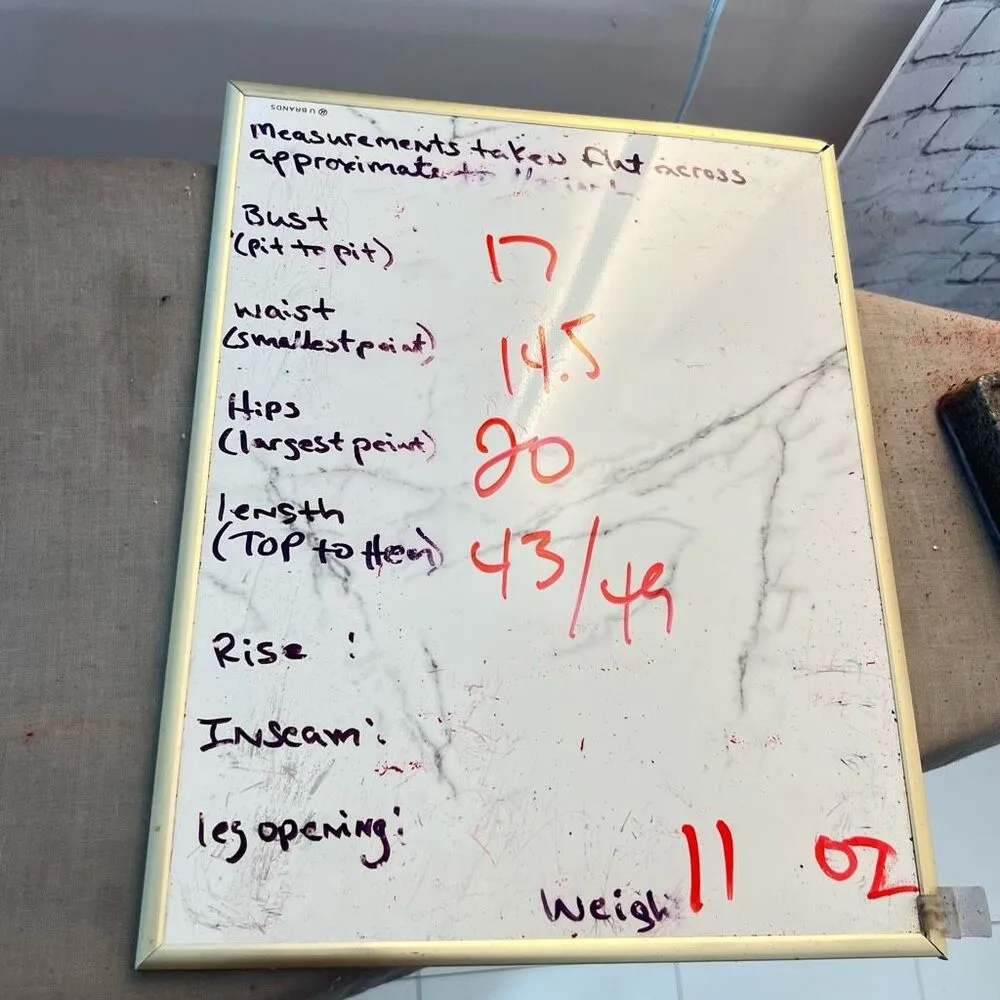 U BRANDS
Measurements taken flat across
approximate to
Bust
(pit to pit) 17
Waist
(smallest point) 14.5
Hips
(largest point) 20
length
(TOP to Hem) 43/49
Rise :
Inseam:
leg opening:
Weigh 11 oz